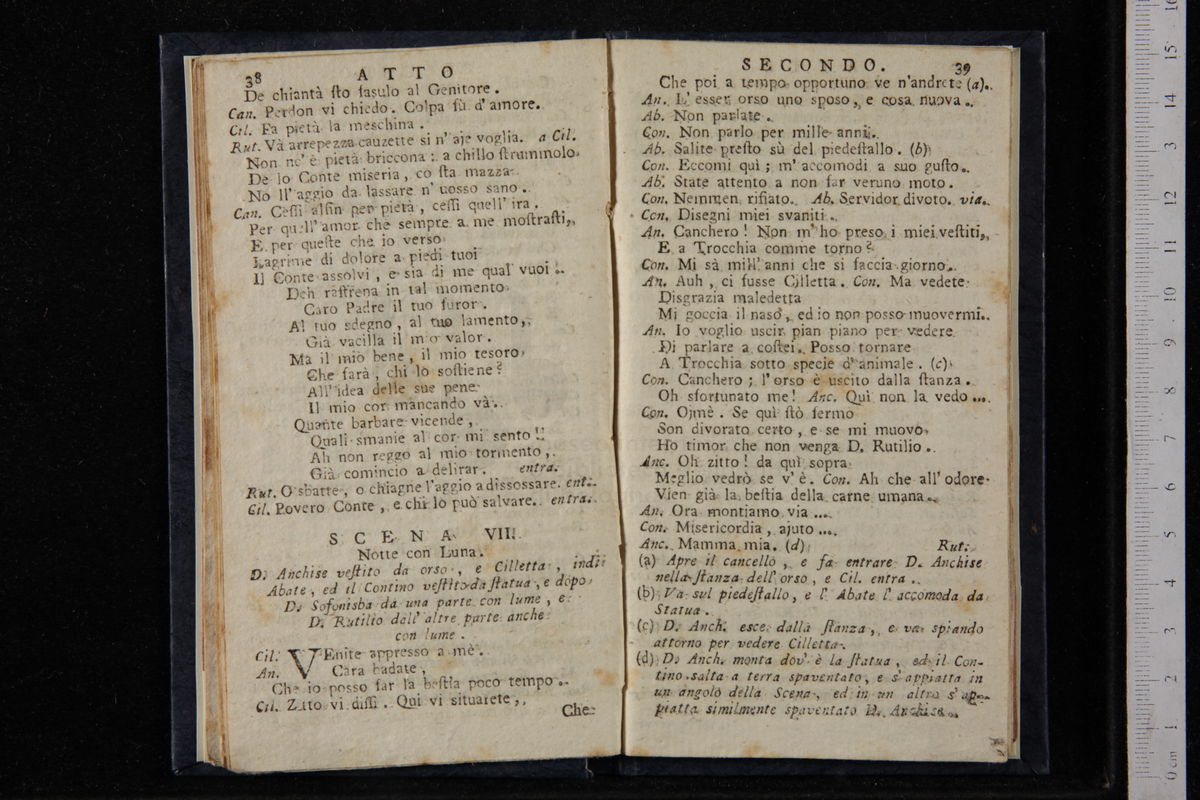 38 ATTO
De chiantà ſto faſulo al Genitore.
Can. Perdon vi chiedo. Colpa fù d'amore.
Cil. Fa pietà la meschina.
Rut. Và arrepezza cauzette si n'aje voglia. a Cil.
Non nc'è pietà briccona: a chillo ſtrummolo
De lo Conte miseria, co ſta mazza
No ll'aggio da lassare n'uosso sano.
Can. Ceſſi alfin per pietà, ceſſi quell'ira.
Per quell'amor che sempre a me moſtraſti,
E per queſte che io verso
Lagrime di dolore a piedi tuoi
Il Conte assolvi, e sia di me qual vuoi.
Deh raffrena in tal momento
Caro Padre il tuo furor.
Al tuo sdegno, al tuo lamento,
Già vacilla il mio valor.
Ma il mio bene, il mio tesoro
Che farà, chi lo soſtiene?
All'idea delle sue pene
Il mio cor mancando và.
Quante barbare vicende,
Quali smanie al cor mi sento!
Ah non reggo al mio tormento,
Già comincio a delirar. entra.
Rut. O sbatte, o chiagne l'aggio a dissossare. ent.
Cil. Povero Conte, e chi lo può salvare. entra.
SCENA VIII.
Notte con Luna.
D. Anchise veſtito da orso, e Cilletta, indi
Abate, ed il Contino veſtito da ſtatua, e dopo
D. Sofonisba da una parte con lume, e
D. Rutilio dall'altre parte anche
con lume.
Cil. VEnite appresso a mè.
An. Cara badate,
Che io posso far la beſtia poco tempo.
Cil. Zitto vi diſſi. Qui vi situarete,
Che
SECONDO. 39
Che poi a tempo opportuno ve n'andrete (a).
An. L'esser orso uno sposo, e cosa nuova.
Ab. Non parlate.
Con. Non parlo per mille anni.
Ab. Salite preſto sù del piedeſtallo. (b)
Con. Eccomi quì; m'accomodi a suo guſto.
Ab. State attento a non far veruno moto.
Con. Nemmen rifiato. Ab. Servidor divoto. via.
Con. Disegni miei svaniti.
An. Canchero! Non m'ho preso i miei veſtiti,
E a Trocchia comme torno?
Con. Mi sà mill'anni che si faccia giorno.
An. Auh, ci fusse Cilletta. Con. Ma vedete
Disgrazia maledetta
Mi goccia il naso, ed io non posso muovermi.
An. Io voglio uscir pian piano per vedere
Di parlare a coſtei. Posso tornare
A Trocchia sotto specie d'animale. (c)
Con. Canchero; l'orso è uscito dalla ſtanza.
Oh sfortunato me! Anc. Quì non la vedo ...
Con. Ojmè. Se quì ſtò fermo
Son divorato certo, e se mi muovo
Ho timor che non venga D. Rutilio.
Anc. Oh zitto! da quì sopra
Meglio vedrò se v'è. Con. Ah che all'odore
Vien già la beſtia della carne umana.
An. Ora montiamo via ....
Con. Misericordia, ajuto ....
Anc. Mamma mia. (d) Rut.
(a) Apre il cancello, e fa entrare D. Anchise
nella ſtanza dell'orso, e Cil. entra.
(b) Va sul piedeſtallo, e l'Abate l'accomoda da
Statua.
(c) D. Anch. esce dalla ſtanza, e va spiando
attorno per vedere Cilletta.
(d) D. Anch. monta dov'è la ſtatua, ed il Con-
tino salta a terra spaventato, e s'appiatta in
un angolo della Scena, ed in un altro s'ap-
piatta similmente spaventato D. Anchise.
0 cm 1 2 3 4 5 6 7 8 9 10 11 12 13 14 15 16